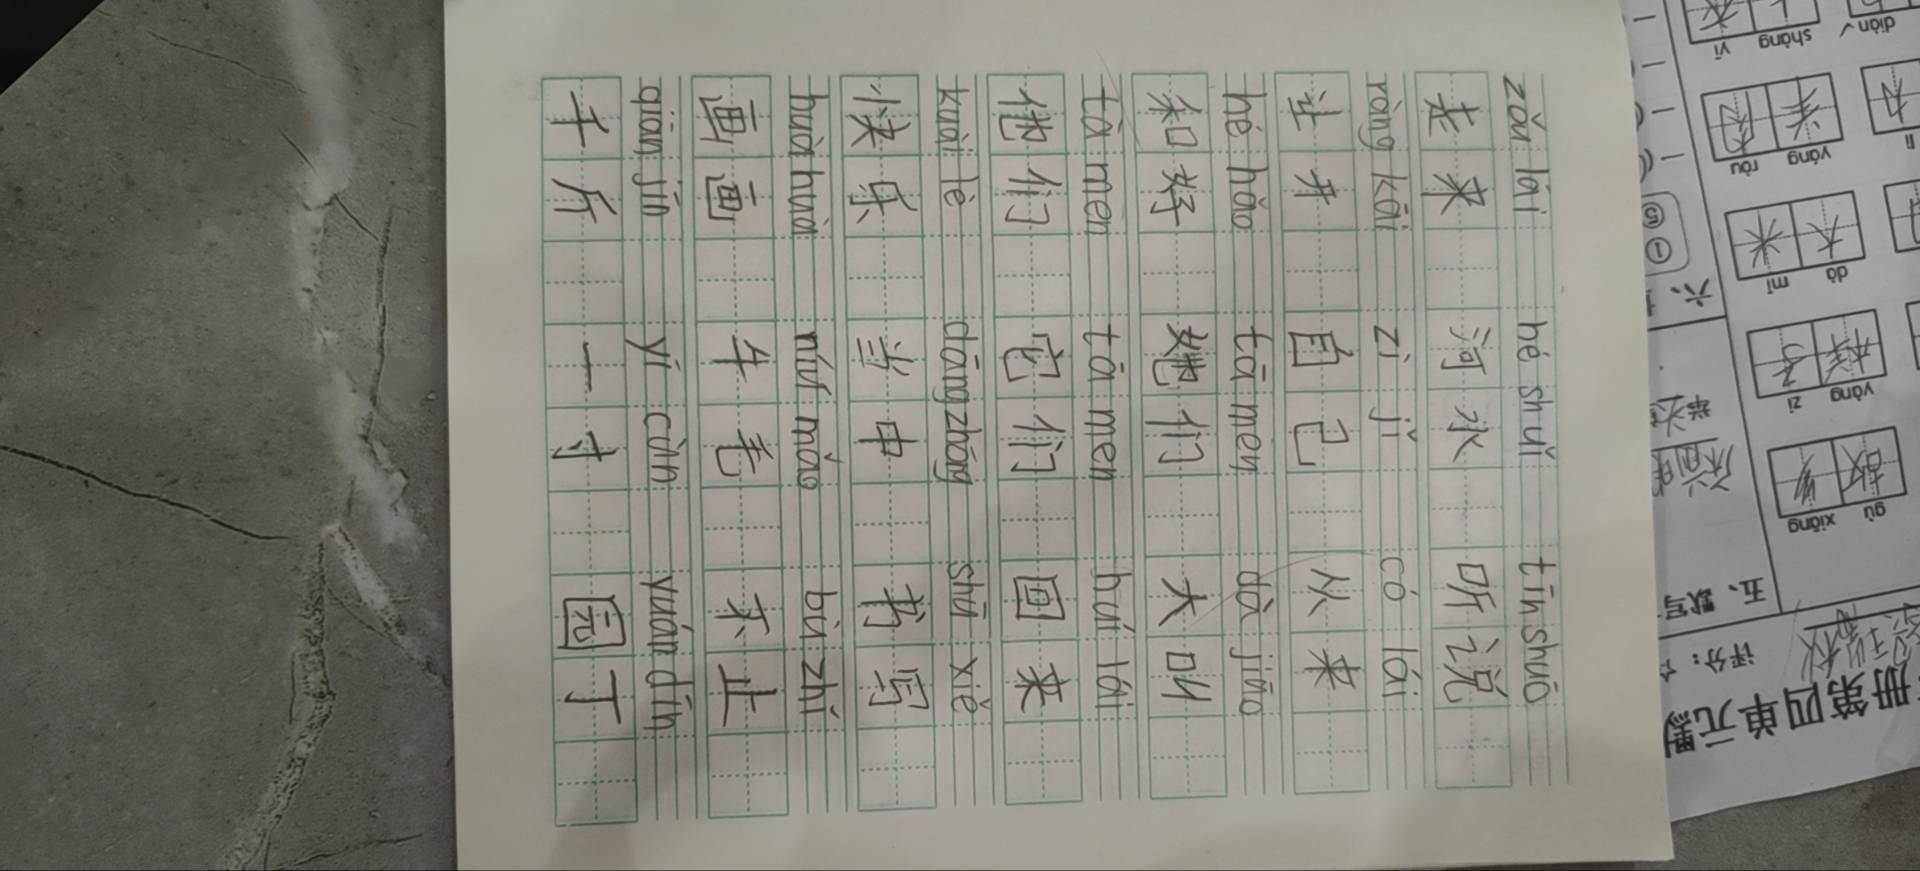 zǒu lái hé shuǐ tīn shuō
走来 河水 听说
ràng kāi zì jǐ có lái
让开 自己 从来
hé hǎo tā men dà jiào
和好 她们 大叫
tā men tā men huí lái
他们 它们 回来
kuài lè dāng zhōng shū xiě
快乐 当中 书写
huà huà niú máo bù zhǐ
画画 牛毛 不止
qiān jīn yí cùn yuán dīn
千斤 一寸 园丁
册第四单元默
评分：
五、默写
gù xiǎng
yàng zi
样子
dà mǐ
大米
yáng ròu
羊肉
shàng yī
上衣
diàn
六、
① ⑤